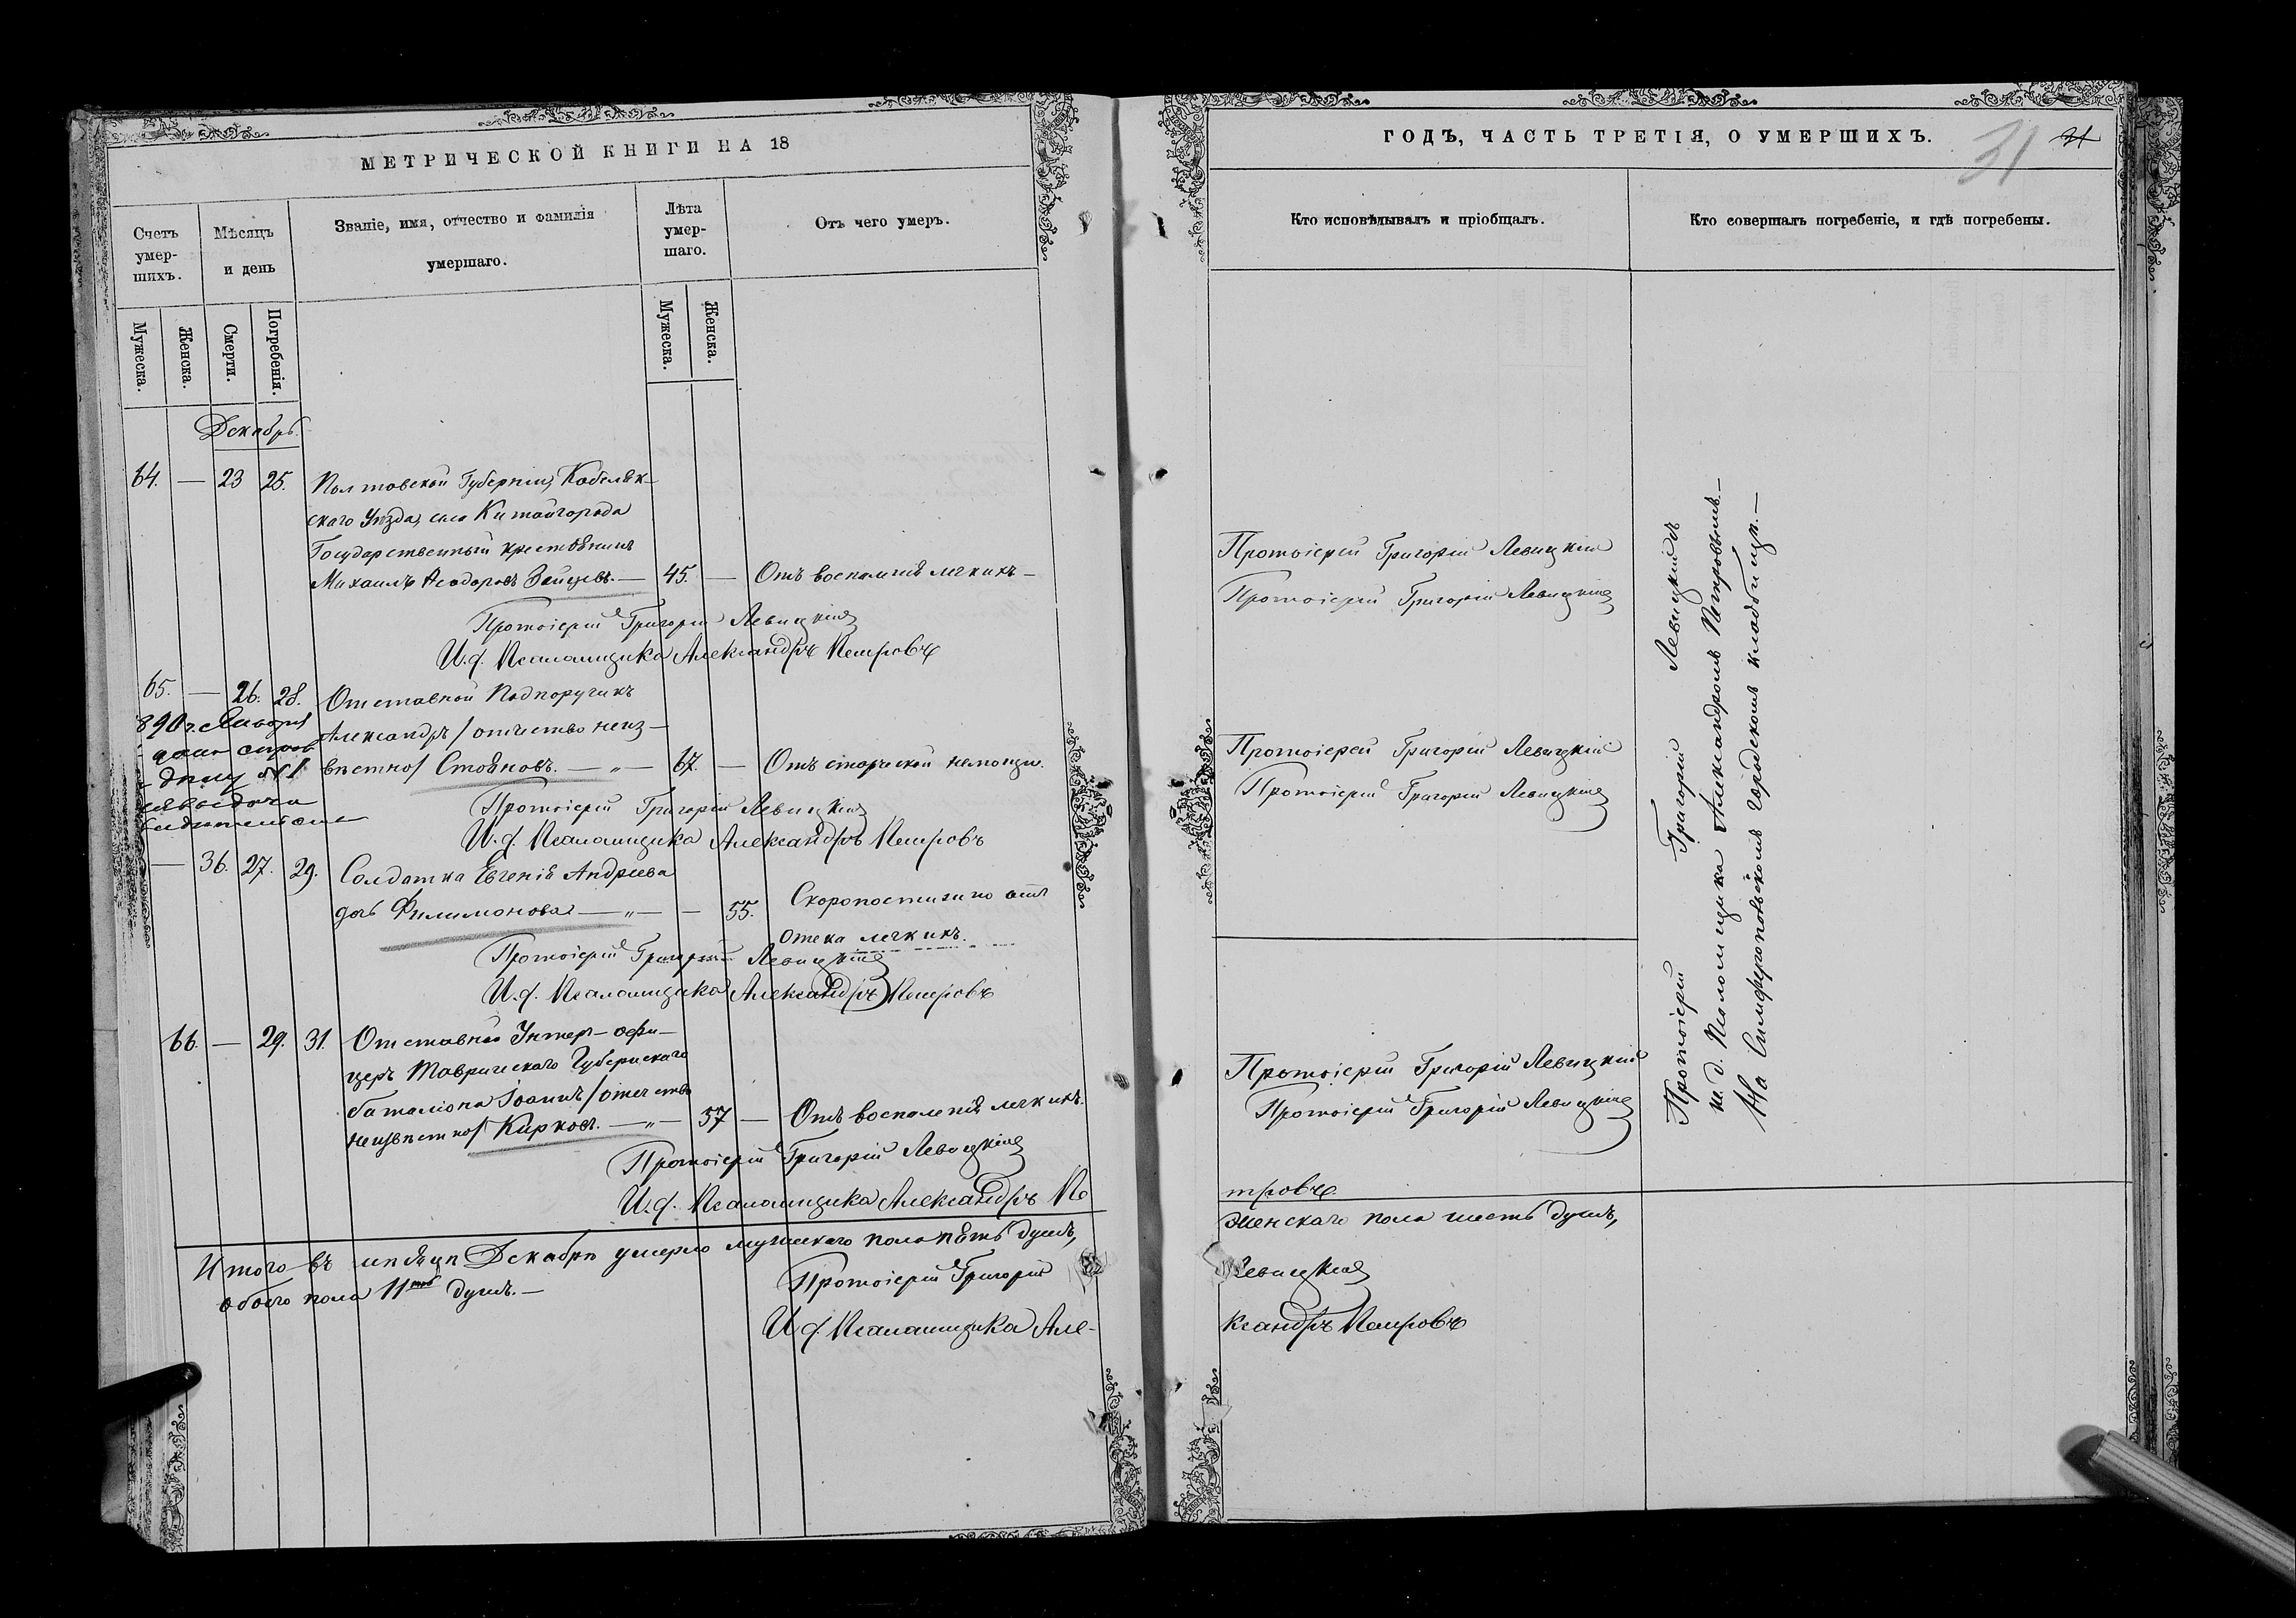 МЕТРИЧЕСКОЙ КНИГИ НА 18
Счетъ умер-шихъ.
Мѣсяцъ и день
Званіе, имя, отчество и фамилія умершаго.
Лѣта умер-шаго.
Отъ чего умеръ.
Мужеска.
Женска.
Смерти.
Погребенія.
Мужеска.
Женска.
Декабрь.
64. — 23 25. Полтавской Губерніи, Кобеляк-
скаго Уѣзда, села Китайгорода
Государственный крестьянинъ
Михаилъ Ѳеодоровъ Зайцевъ. — 45. — Отъ воспаленія легкихъ —
Протоіерей Григорій Левицкій
И. д. Псаломщика Александръ Петровъ
65. — 26. 28. Отставной Подпоручикъ
Александръ /отчество неиз-
вѣстно/ Стояновъ. — „ — 67. — Отъ старческой немощи.
890 г. Января
Протоіерей Григорій Левицкій
И. д. Псаломщика Александръ Петровъ
— 36. 27. 29. Солдатка Евгенія Андреева
дочь Филимонова — „ — — 55. Скоропостижно отъ
отека легкихъ.
Протоіерей Григорій Левицкій
И. д. Псаломщика Александръ Петровъ
66. — 29. 31. Отставной Унтеръ-офи-
церъ Таврическаго Губернскаго
баталіона Іоаннъ /отчество
неизвѣстно/ Кирковъ. — „ — 57 — Отъ воспаленія легкихъ.
Протоіерей Григорій Левицкій
И. д. Псаломщика Александръ Пе
Итого въ мѣсяцѣ Декабрѣ умерло мужскаго пола пять душъ,
обоего пола 11ть душъ. —
Протоіерей Григорій
И. д. Псаломщика Але-
ГОДЪ, ЧАСТЬ ТРЕТІЯ, О УМЕРШИХЪ.
31
Кто исповѣдывалъ и пріобщалъ.
Кто совершалъ погребеніе, и гдѣ погребены.
Протоіерей Григорій Левицкій
Протоіерей Григорій Левицкій
Протоіерей Григорій Левицкій
Протоіерей Григорій Левицкій
Протоіерей Григорій Левицкій
Протоіерей Григорій Левицкій
тровъ
женскаго пола шесть душъ,
Левицкій
ксандръ Петровъ
Протоіерей Григорій Левицкій съ
и. д. Псаломщика Александромъ Петровымъ. —
На Симферопольскомъ городскомъ кладбищѣ. —